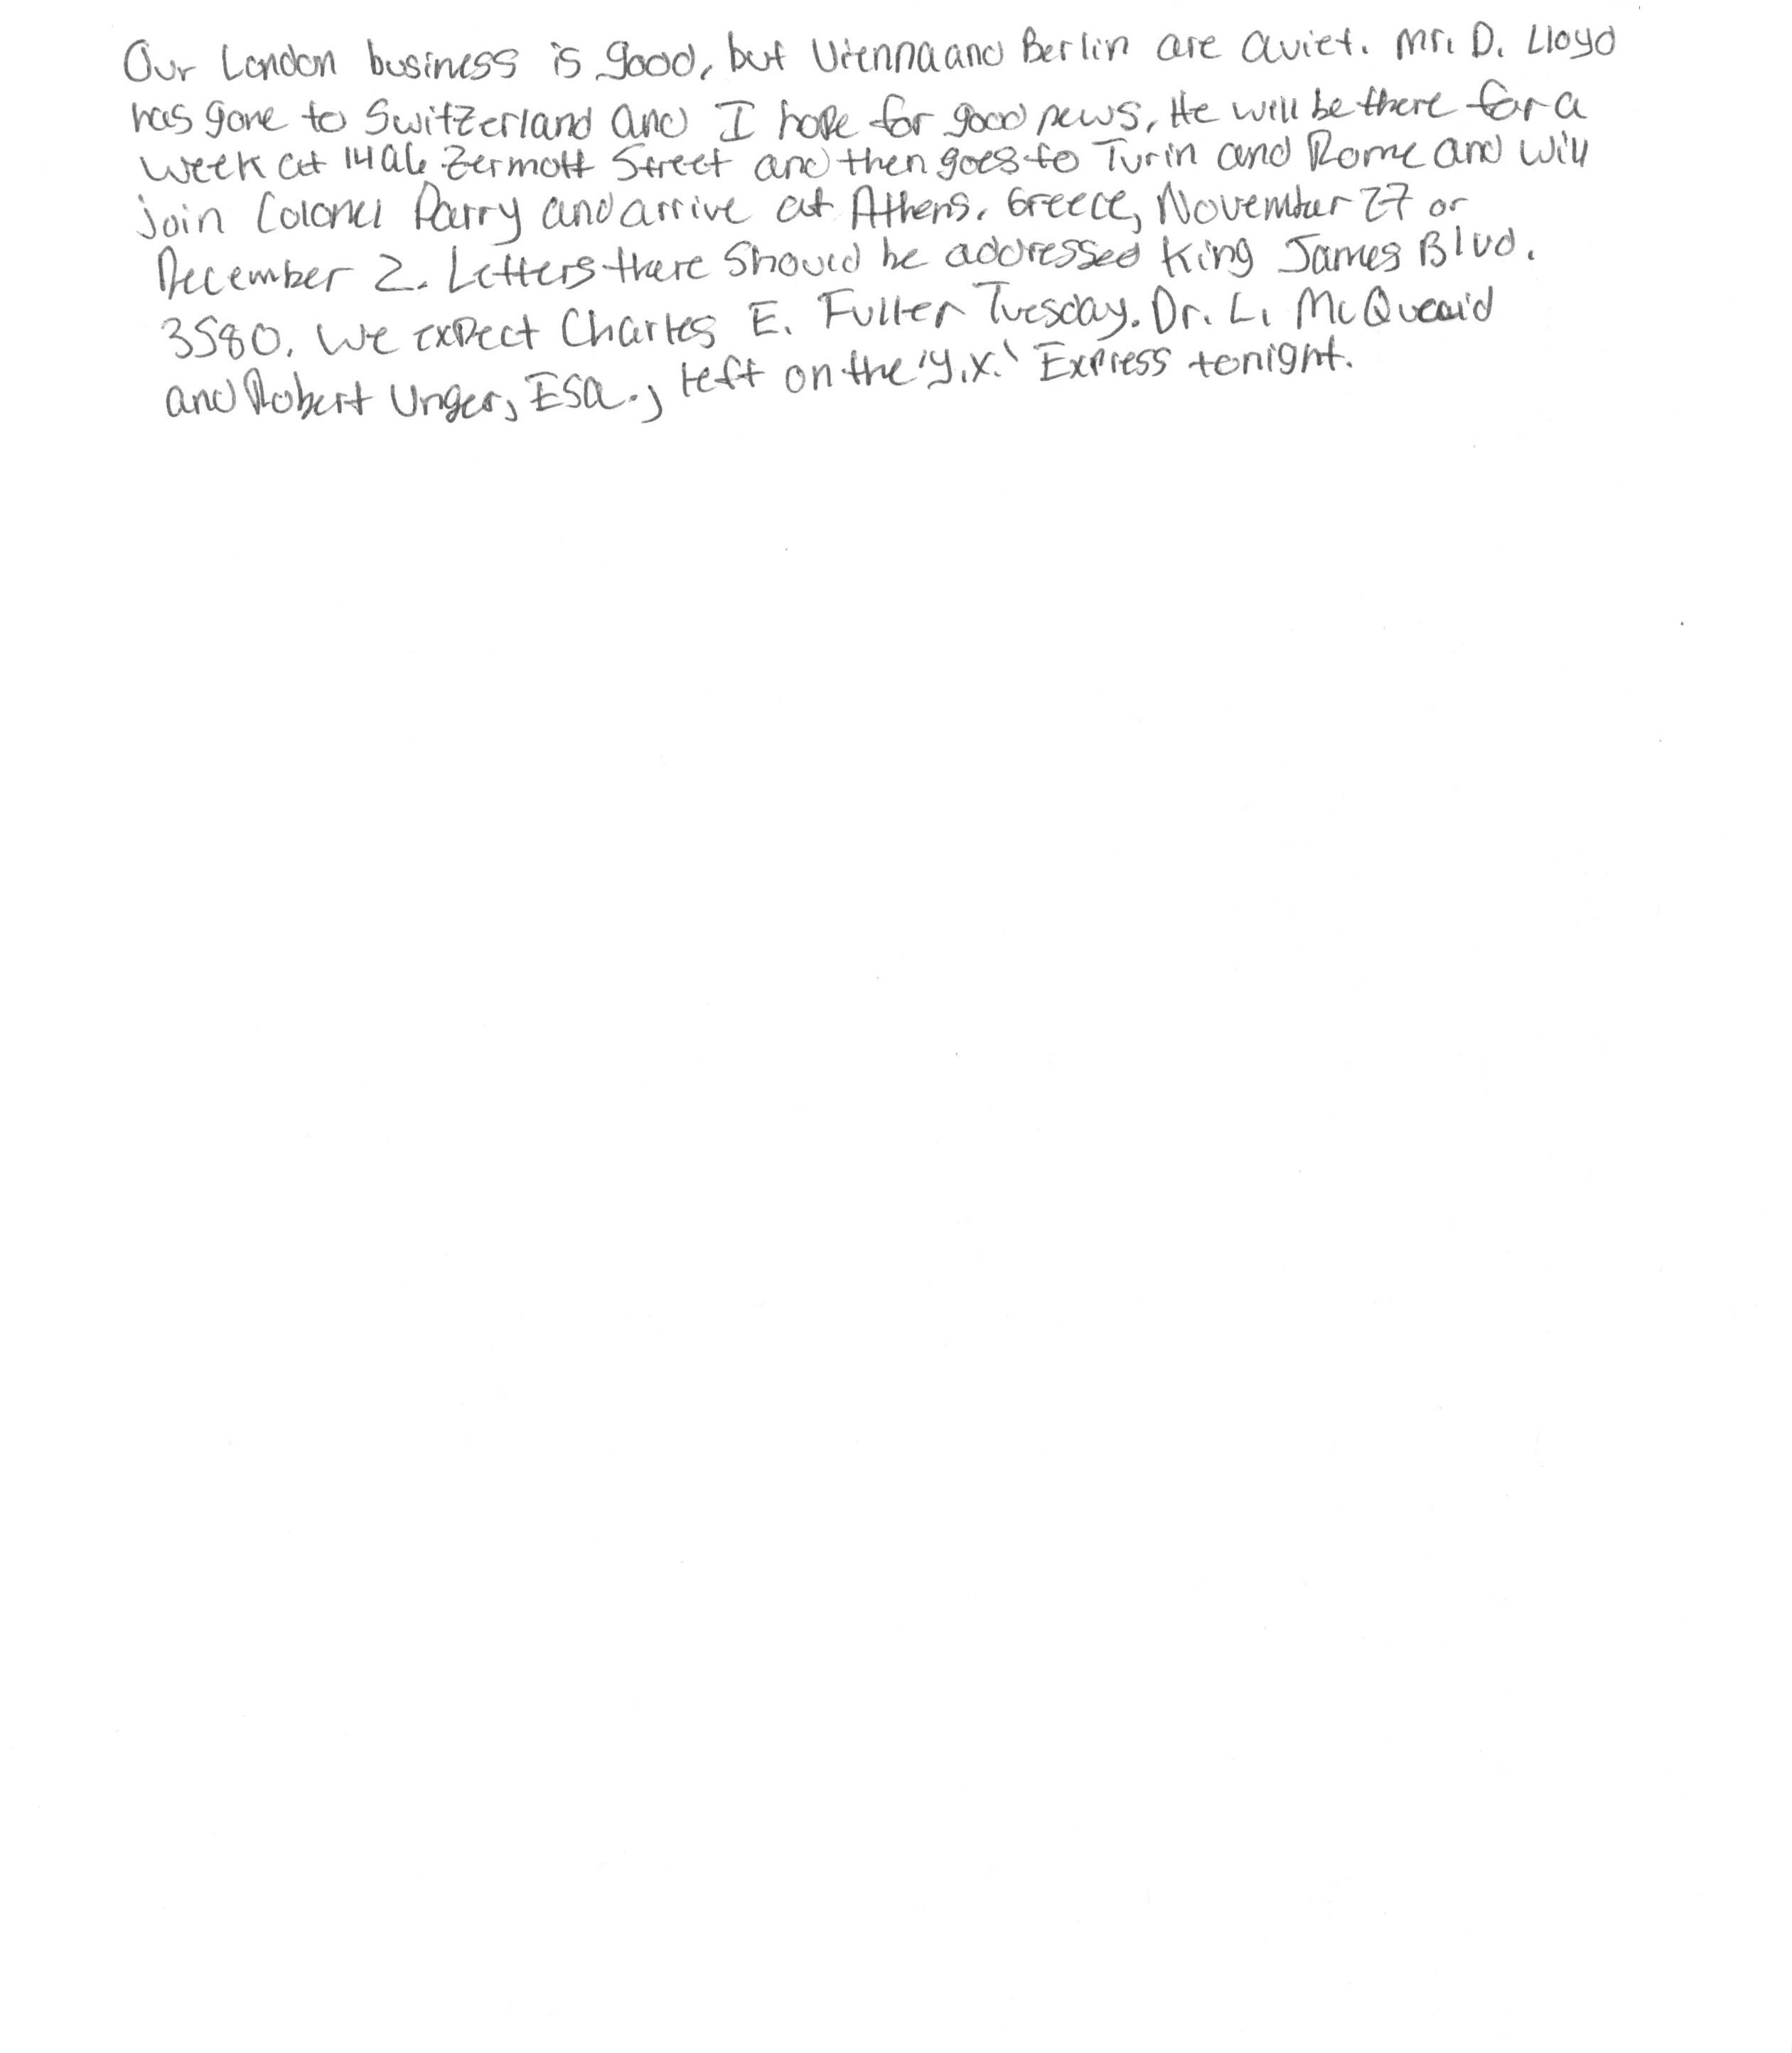 Our London business is good, but Vienna and Berlin are quiet. Mr. D. Lloyd
has gone to Switzerland and I hope for good news. He will be there for a
week at 1496 Zermott Street and then goes to Turin and Rome and will
join Colonel Parry and arrive at Athens, Greece, November 27 or
December 2. Letters there should be addressed King James Blvd.
3580. We expect Charles E. Fuller Tuesday. Dr. L. McQuaid
and Robert Unger, Esq., left on the 'Y.X.' Express tonight.